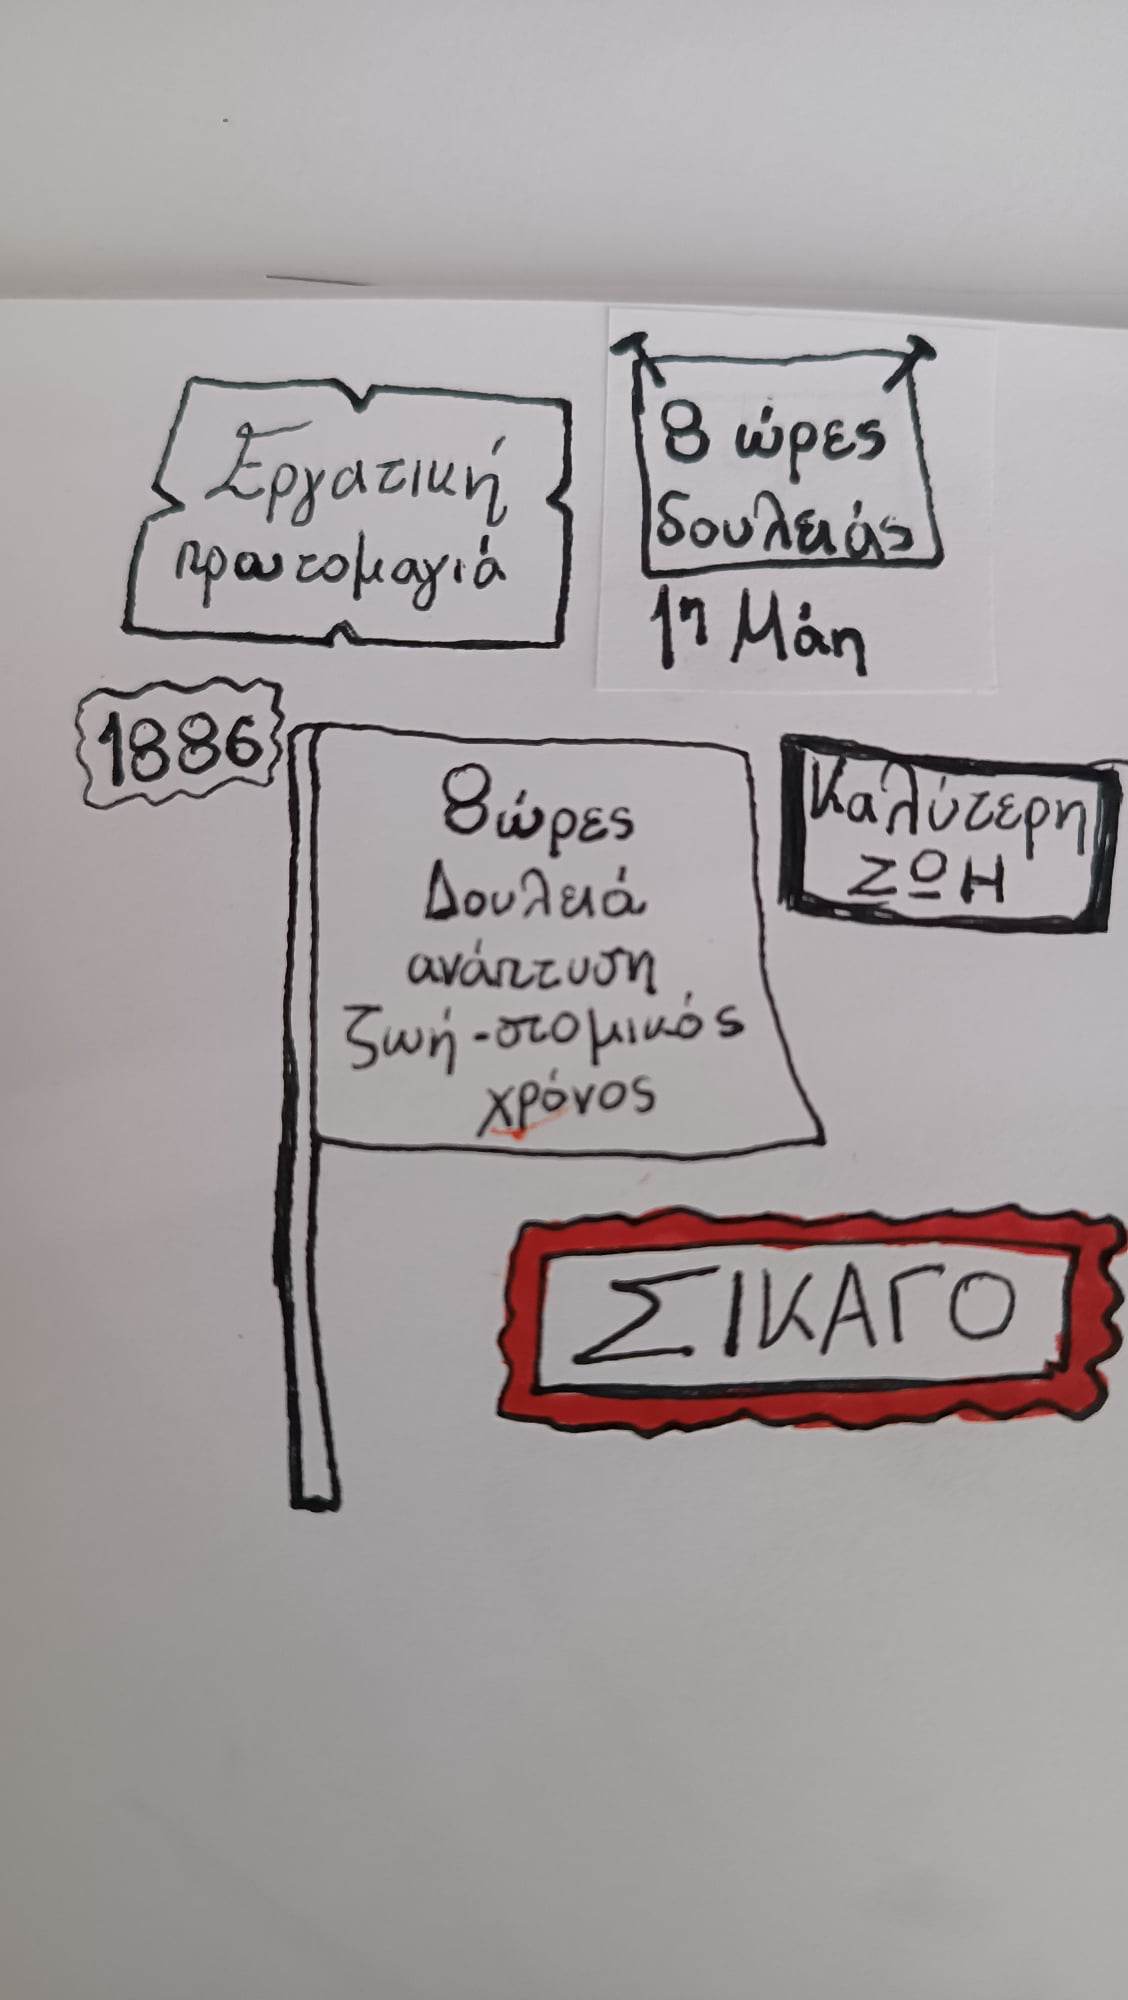 Εργατική
πρωτομαγιά
8 ώρες
δουλειάς
1η Μάη
1886
8 ώρες
Δουλειά
ανάπτυση
ζωή - στομικός
χρόνος
Καλύτερη
ΖΩΗ
ΣΙΚΑΓΟ